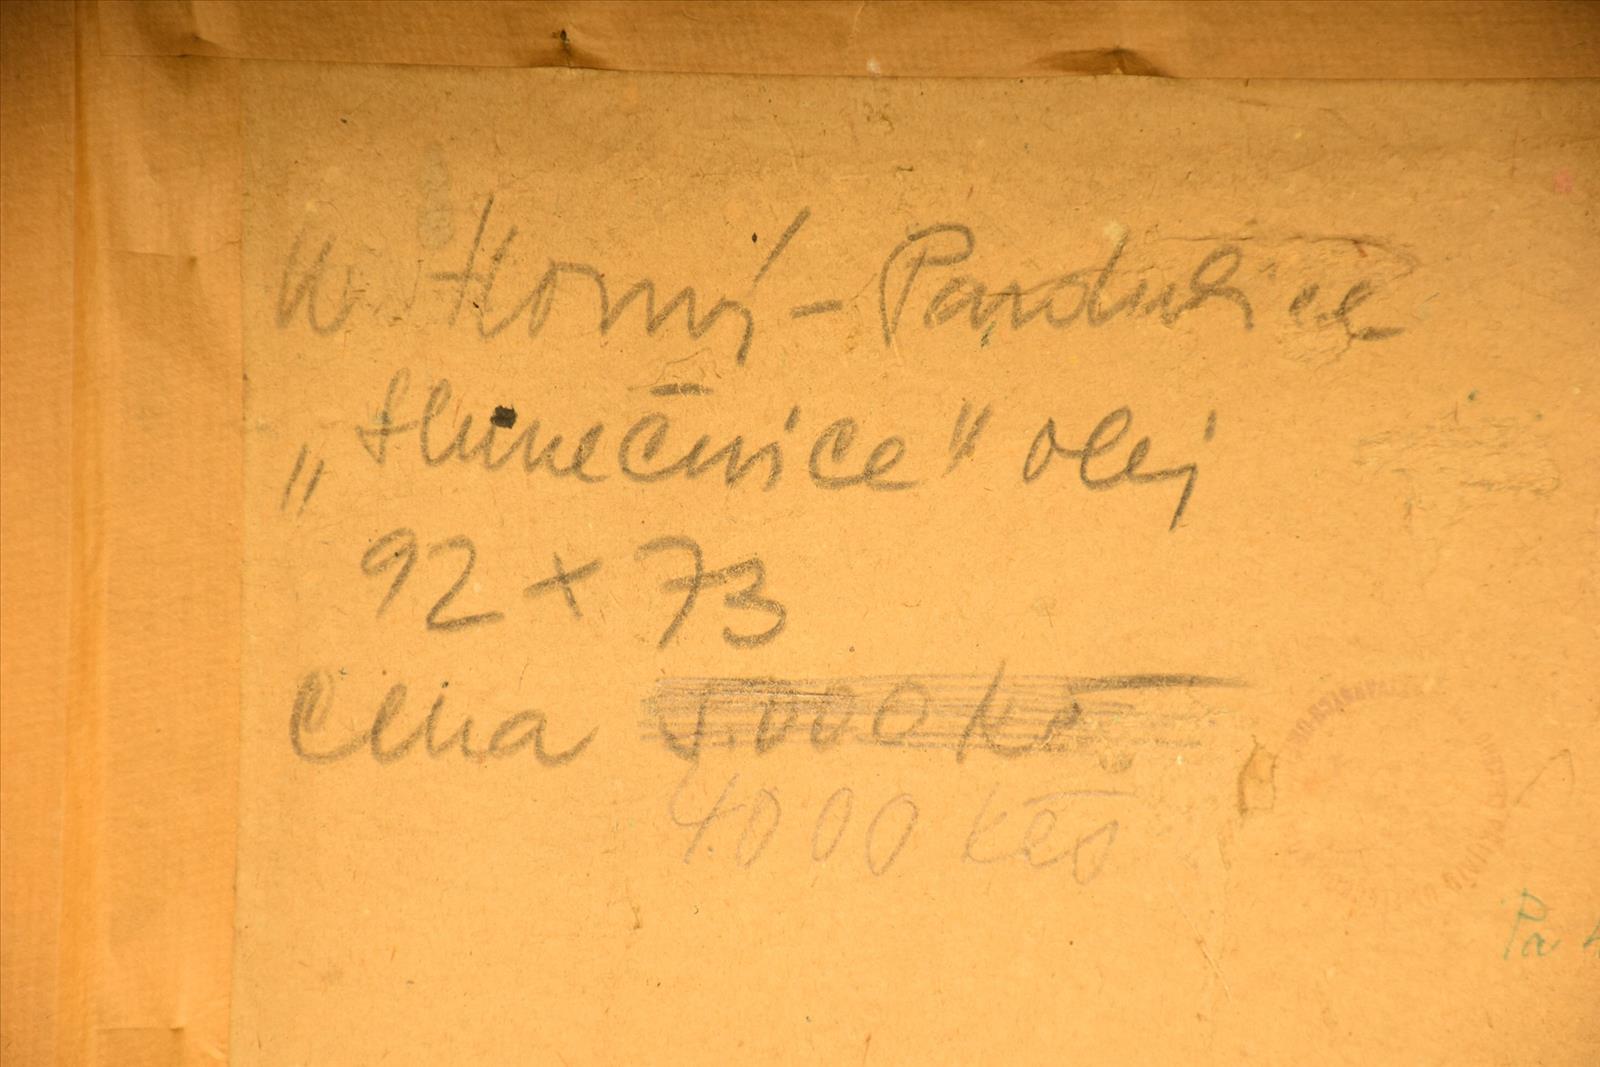 Horný - Pardubice
„Slunečnice" olej
92 x 73
Cena 5.000 Kčs
4000 Kčs
Pa